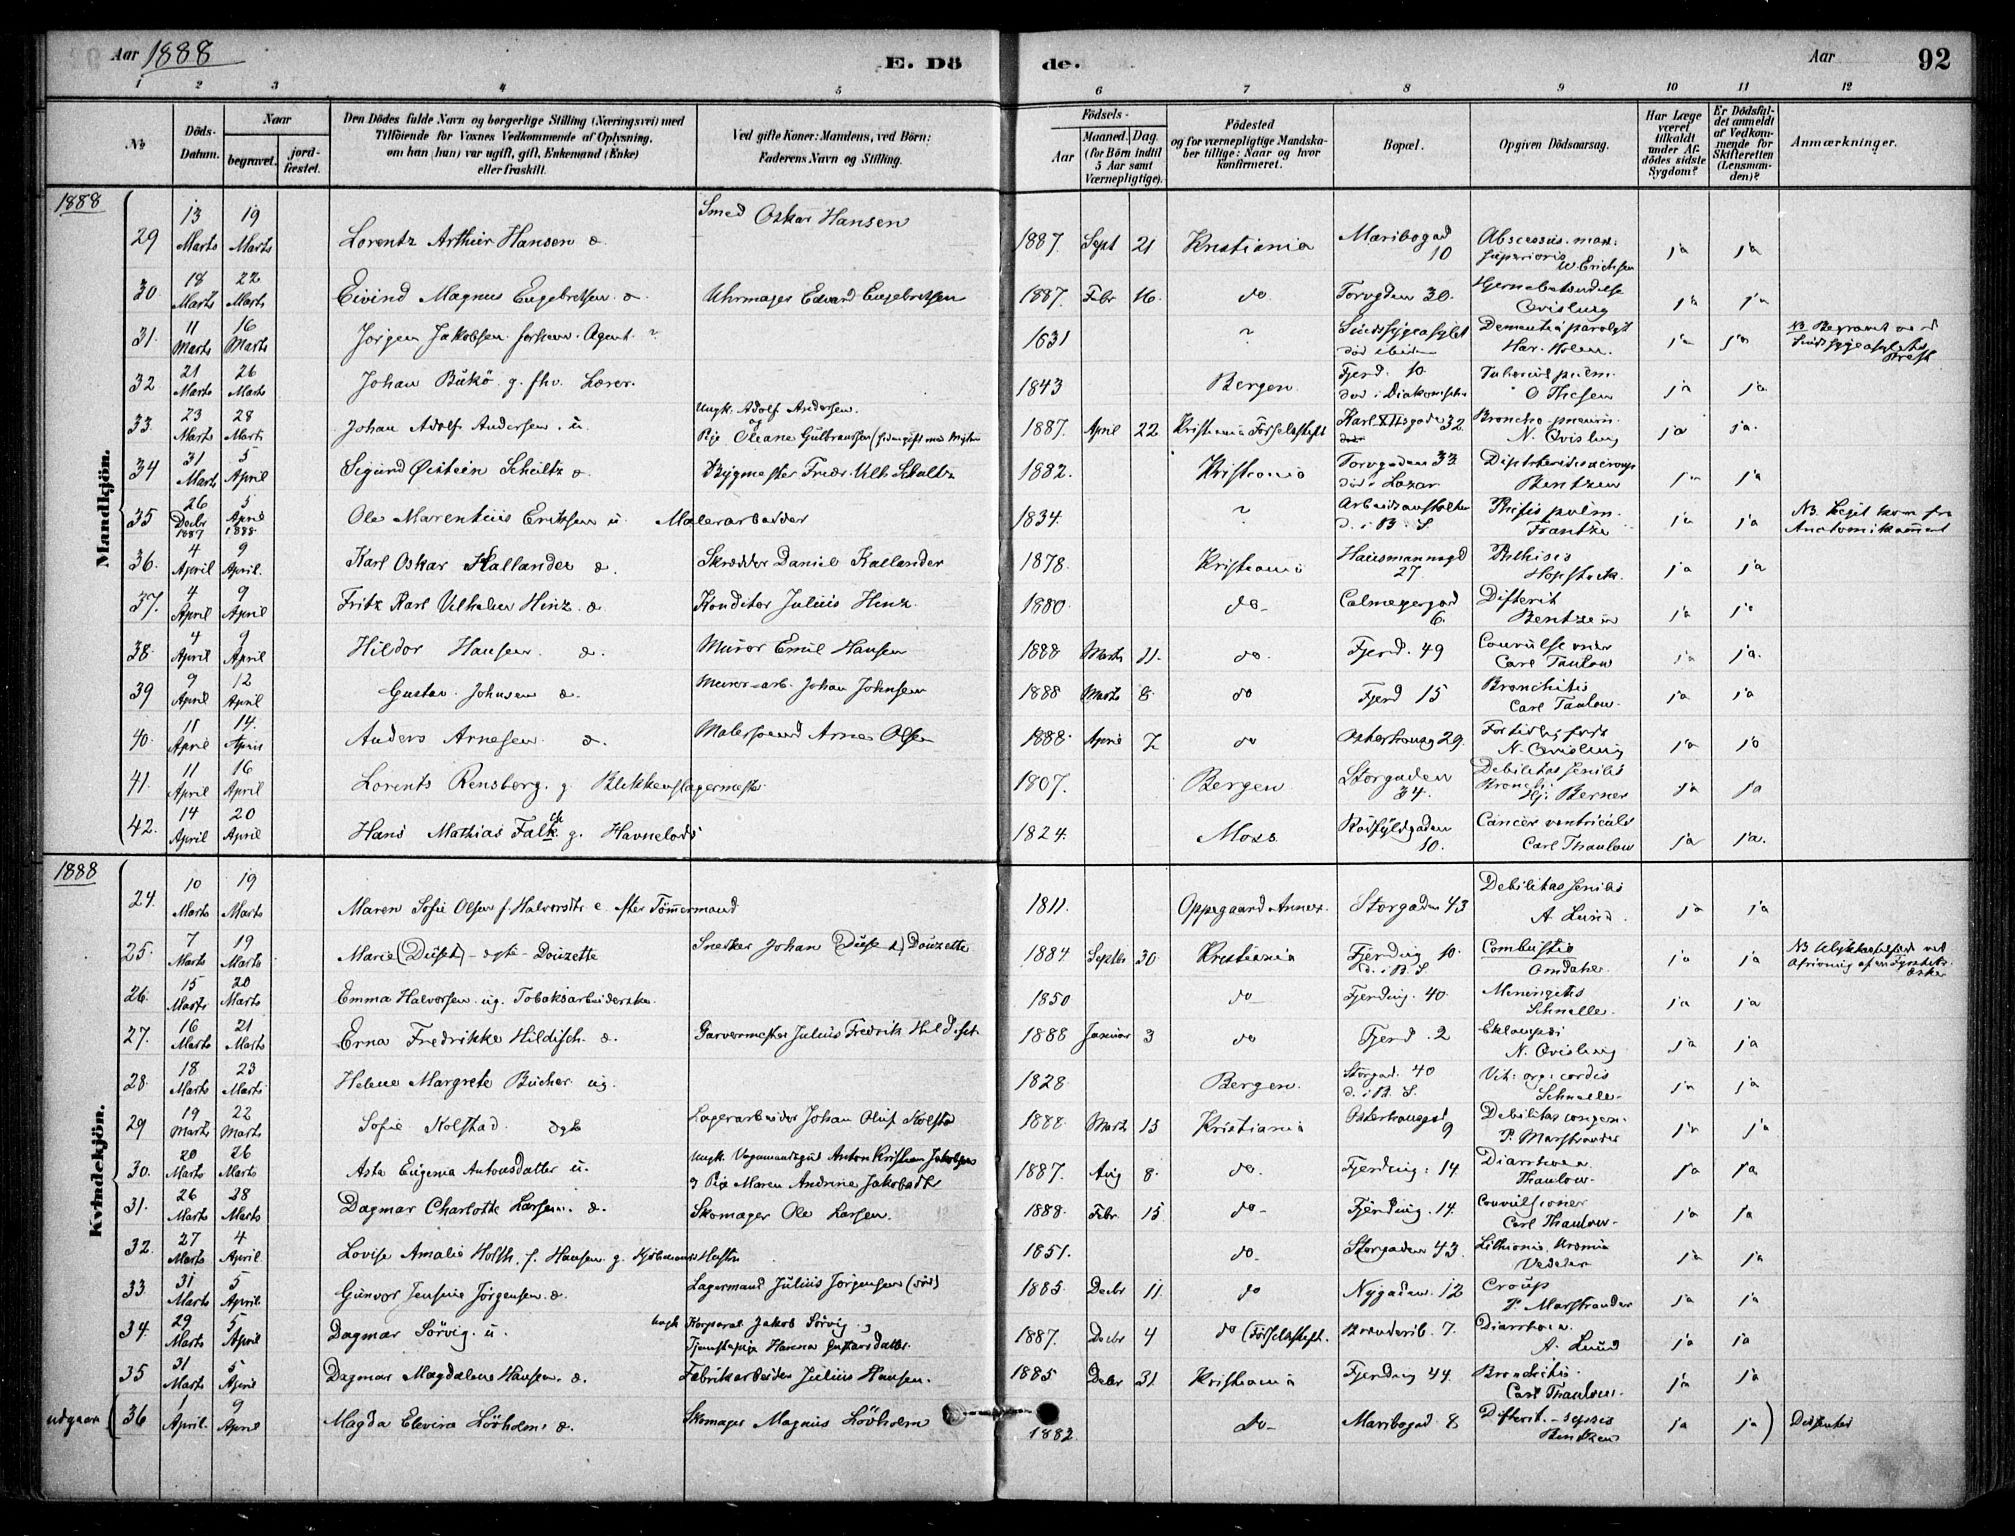 Aar 1888 E. Dö de. Aar 92
1 2 3 4 5 6 7 8 9 10 11 12
No
Döds-Datum.
Naar
begravet.
jordfæstet.
Den Dödes fulde Navn og borgerlige Stilling (Næringsvei) med
Tilföiende for Voxnes Vedkommende af Oplysning,
om han (hun) var ugift, gift, Enkemand (Enke)
eller fraskilt.
Ved gifte Koner: Mandens, ved Börn:
Faderens Navn og Stilling.
Födsels-
Aar
Maaned. Dag.
(for Börn indtil
5 Aar samt
Værnepligtige).
Födested
og for værnepligtige Mandska-
ber tillige: Naar og hvor
konfirmeret.
Bopæl.
Opgiven Dödsaarsag.
Har Læge
været
tilkaldt
under Af-
dödes sidste
Sygdom?
Er Dödsfal-
det anmeldt
af Vedkom-
mende for
Skifteretten
(Lensman-
den)?
Anmærkninger.
Mandkjön.
1888
29 13 Marts 19 Marts Lorentz Arthur Hansen æ Smed Oskar Hansen 1887. Sept 21 Kristiania Maribogad 10 Abscessus max: superioris W Erichsen ja ja
30 18 Marts 22 Marts Eivind Magnus Engebretsen æ. Uhrmager Edvard Engebretsen 1887. Febr 16. do Torvgden 30. Hjernebetændelse Qvisling ja ja
31. 11 Marts 16 Marts Jörgen Jakobsen Agent ? 1831 ? Sindssygeasylet död Dementia paralyt Har. Holm. ja ja NB Begravet Sindssygeasylets
32 21 Marts 26 Marts Johan Bükö g. fhv. Lærer. 1843 Bergen Fjerd. 10. död i Diakonissehs Tubercul pulm. O Thesen ja ja
33. 23 Marts 28 Marts Johan Adolf Andersen. u Ungk. Adolf Andersen og Pige Oleane Gulbransen 1887. April 22 Kristiania Födselsstift Karl XIIsgade 32 Broncho pneum. N. Qvisling ja ja
34 31 Marts 5 April Sigurd Öistein Schultz æ Bygmester Fredr. Vilh Schultz 1882. Kristiania Torvgaden 33 död i Lazar Diphtheritis Bentzen ja ja
35 26 Decbr 1887 5 April 1888 Ole Marentius Eriksen u Malerarbeider 1834. ? Arbeidsanstalten d. i B. S. Phtisis pulm. Frantze ja ja NB. Liget kom fra Anatomikammeret
36. 4 April 9 April. Karl Oskar Kallander æ. Skrædder Daniel Kallander 1878. Kristiania Hausmannsgd 27. Phthisis Hopstock. ja ja
37. 4 April 9 April Fritz Karl Vilhelm Hinz. æ Konditor Julius Hinz 1880. do- Calmeyergad 6. Difterit Bentzen ja ja
38. 4 April 9 April Hildor Hansen æ. Murer Emil Hansen 1888 Marts 11. do. Fjerd. 49 Convulsioner Carl Taulow ja ja.
39 9 April 12 April Gustav Johnsen æ. Murer-arb. Johan Johnsen 1888 Marts 8. do Fjerd 15 Bronchitis Carl Taulow. ja ja
40. 11 April 14. April Anders Arnesen æ. Malersvend Arne Olsen 1888. April 7. do Osterhausg 29. For tidlig föds N. Qvisling ja ja
41. 11 April 16 April Lorents Rensberg. g. Blikkenslagermester 1807. Bergen Storgaden 34. Debilitas senilis Bronch: Hj: Berner ja ja
42. 14 April 20 April Hans Mathias Falk g. Havnelods 1824. Moss Rödfyldgaden 10. Cancer ventriculi Carl Thaulow ja ja.
Kvindekjön.
1888
24. 10 Marts 19 Marts Maren Sofie Olsen f. Halvorsdtr e. efter Tömmermand 1811. Oppegaard Annex. Storgaden 43 Debilitas senilis A. Lund. ja ja
25. 7 Marts 19 Marts Marie (Duset) - ægte - Douzette Snedker Johan (Duset) Douzette 1884 Septbr 30. Kristiania Fjerding 10. d. i R. S Combustio Omdahl. ja ja NB Ulykkestilfæld ved Afrivning af en Fyrstik-æsker
26. 15 Marts 20 Marts Emma Halvorsen ug. Tobaksarbeiderske. 1850 do Fjerding. 40. Meningitis Schnelle. ja ja
27. 16 Marts 21 Marts Erna Fredrikke Hildisch. æ. Garvermester Julius Fredrik Hildisch. 1888 Januar 3 do Fjerd. 2 Eklampsi N. Qvisling ja ja
28. 18 Marts 23 Marts Helene Margrete Bücher ug. 1828. Bergen. Storgad. 40 d. i R. S. Vit: org: cordis Schnelle- ja ja
29 19 Marts 22 Marts Sofie Kolstad ægte Lagerarbeider Johan Oluf Kolstad 1888. Marts 13 Kristiania Osterhausgd 9 Debilitas congen. P. Marstrander ja ja
30. 20 Marts 26 Marts Asta Eugenia Antonsdatter u. Ungk. Vognmandsgut Anton Kristian Jakobsen og Pige Maren Andrine Jakobsdtr 1887. Aug 8. do. Fjerding. 14 Diarrhoea. Thaulow. ja ja
31. 26 Marts 28 Marts Dagmar Charlotte Larsen. æ. Skomager Ole Larsen. 1888. Febr. 15 do- Fjerding. 14. Convulsioner Carl Thaulow- ja ja
32. 27 Marts 4 April Lovise Amalie Holth. f. Hansen g. Kjöbmand Holth 1851. do. Storgaden 43. Uræmia Vedeler ja ja
33 31 Marts 5 April. Gunvor Jensine Jörgensen æ. Lagermand Julius Jörgensen (död) 1885 Decbr 11. do Nygaden. 12 Croup P. Marstrander ja ja
34. 29 Marts 5 April Dagmar Sörvig. u. Ungk Korporal Jakob Sörvig og Tjenestepige Hanna Gustavsdatter. 1887. Decbr 4 do (Födselsstift. Brænderib. 7. Diarrhoea. A. Lund ja ja
35 31 Marts 5 April Dagmar Magdalene Hansen. æ. Fabrikarbeider Julius Hansen. 1885 Decbr 31. Kristiania Fjerding 44. Bronchitis. Carl Thaulow. ja ja
udgaar 36 1 April. 9 April Magda Elevira Lövholm æ. Skomager Magnus Lövholm 1882. do- Maribogad 8 Difterit. - sepsis Bentzen ja ja Dissenter